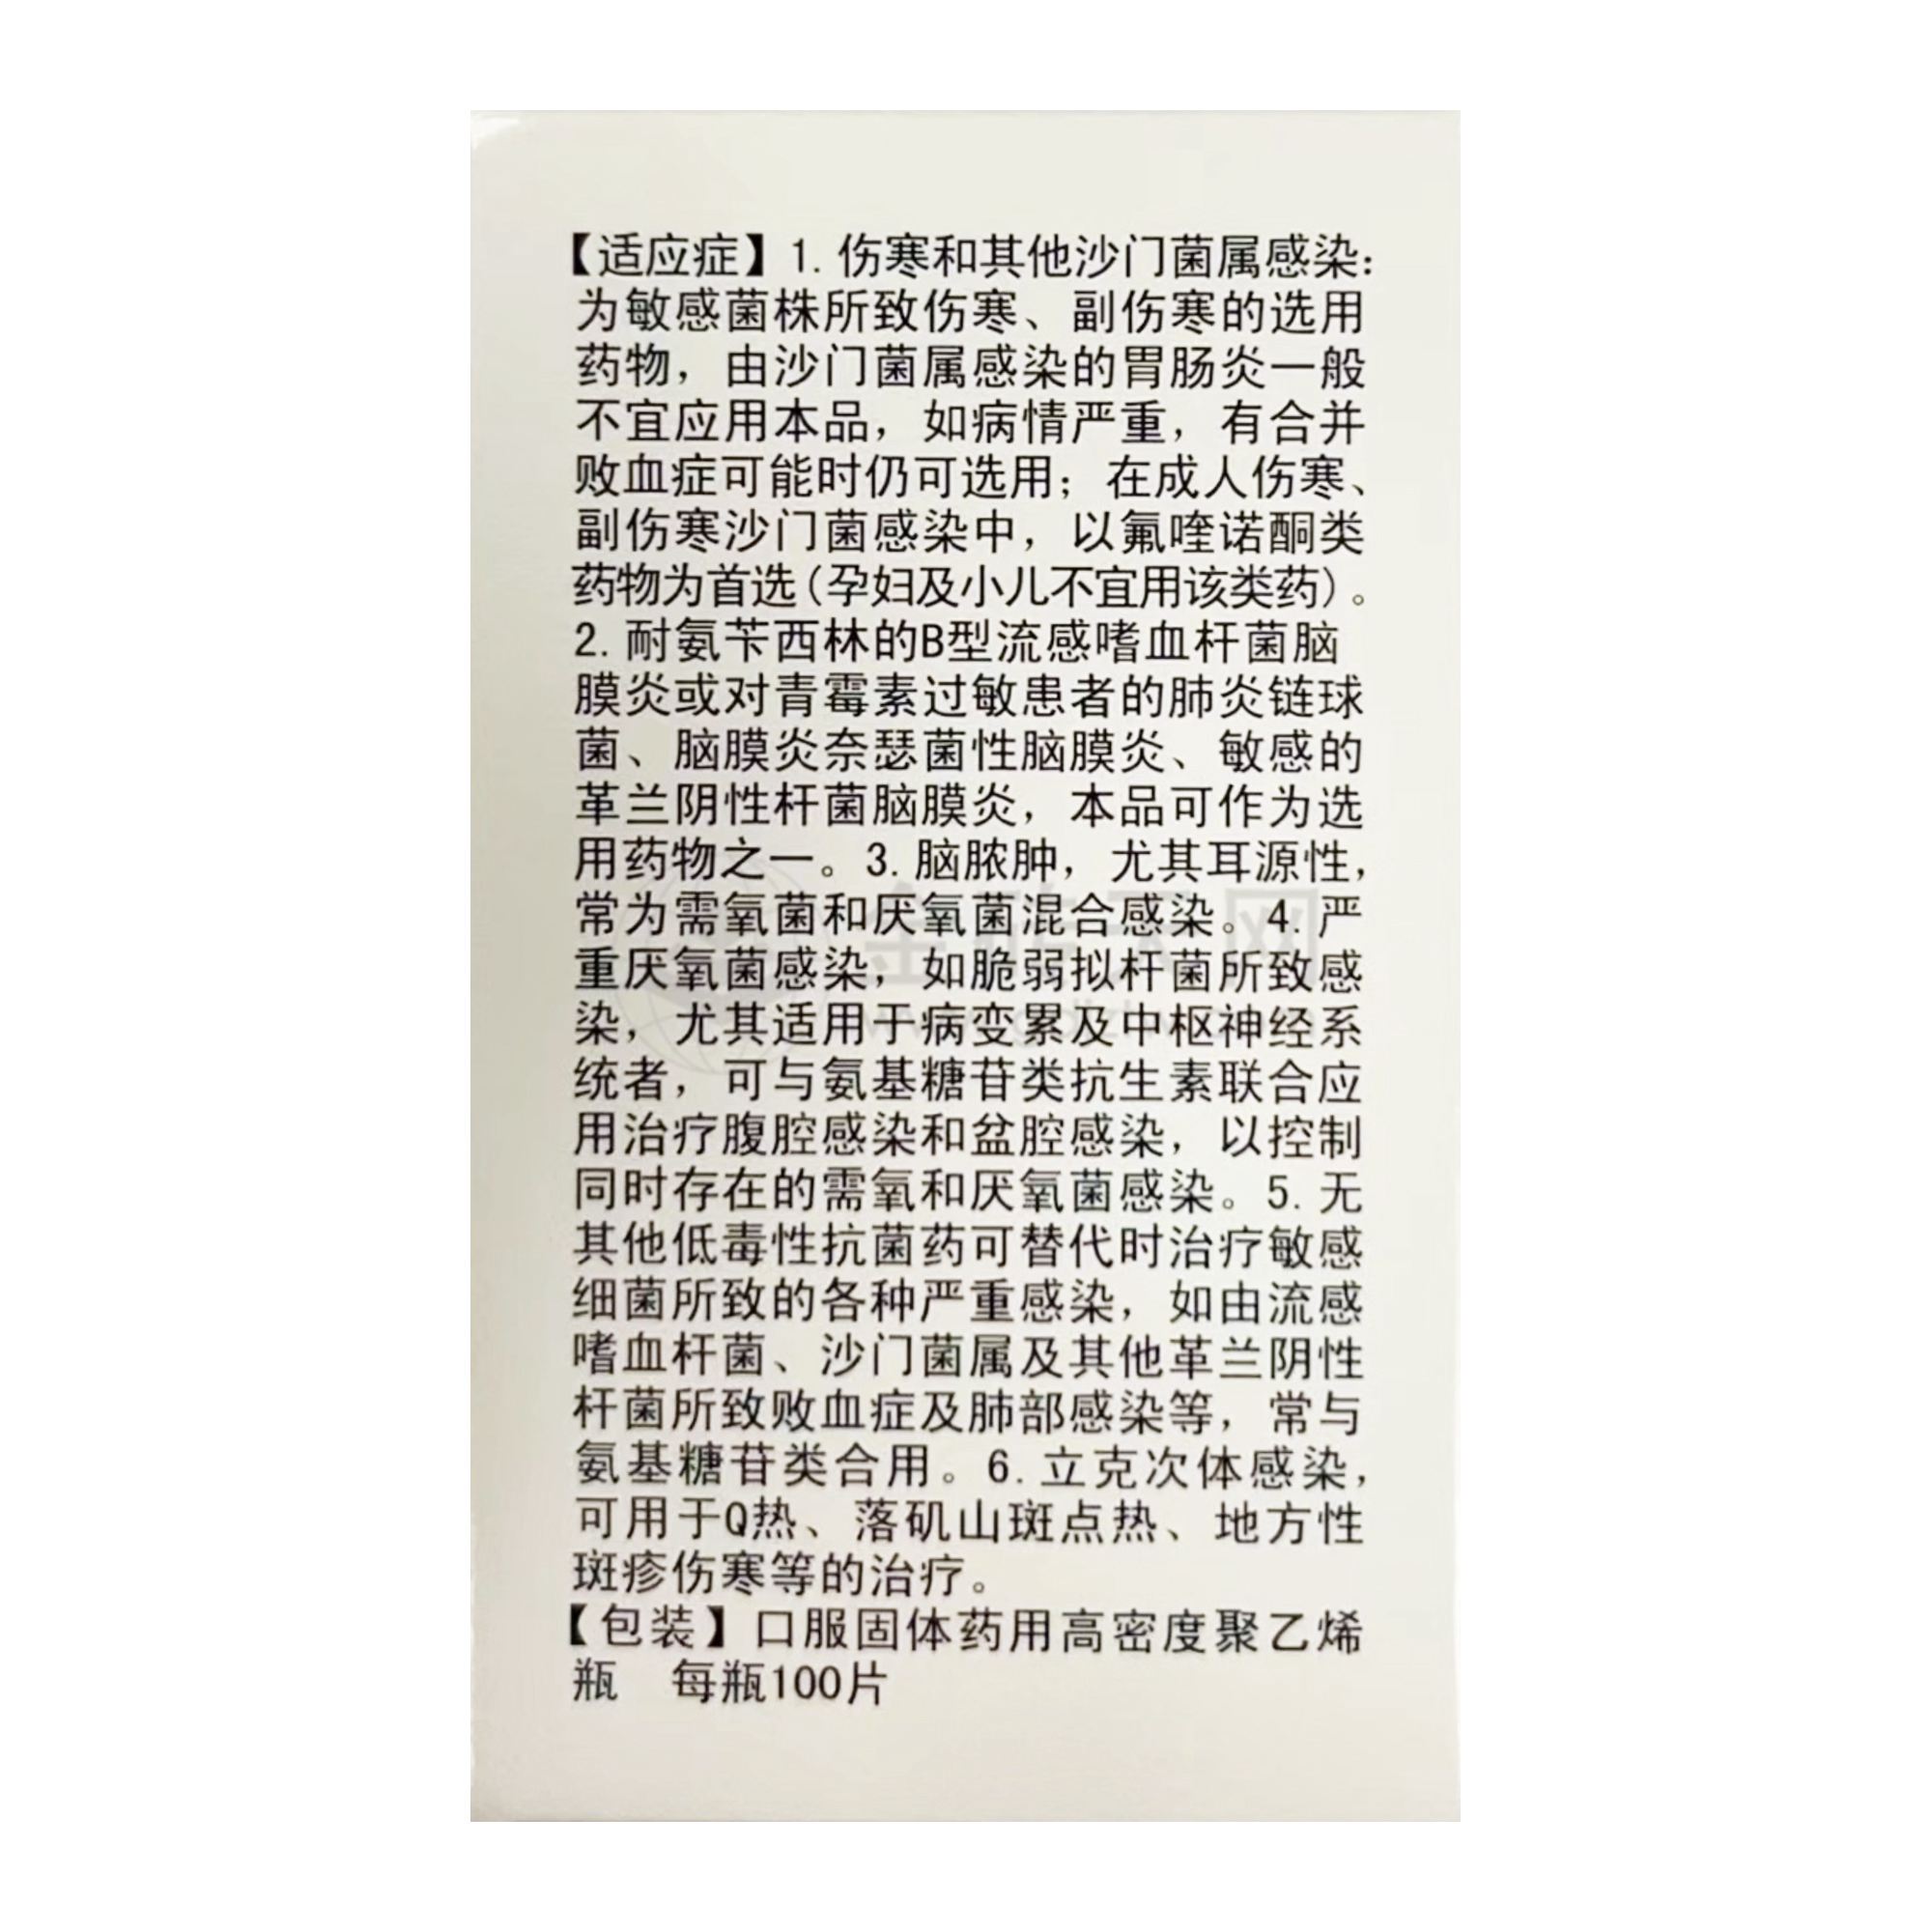 【适应症】1.伤寒和其他沙门菌属感染：
为敏感菌株所致伤寒、副伤寒的选用
药物，由沙门菌属感染的胃肠炎一般
不宜应用本品，如病情严重，有合并
败血症可能时仍可选用；在成人伤寒、
副伤寒沙门菌感染中，以氟喹诺酮类
药物为首选(孕妇及小儿不宜用该类药)。
2.耐氨苄西林的B型流感嗜血杆菌脑
膜炎或对青霉素过敏患者的肺炎链球
菌、脑膜炎奈瑟菌性脑膜炎、敏感的
革兰阴性杆菌脑膜炎，本品可作为选
用药物之一。3.脑脓肿，尤其耳源性，
常为需氧菌和厌氧菌混合感染。4.严
重厌氧菌感染，如脆弱拟杆菌所致感
染，尤其适用于病变累及中枢神经系
统者，可与氨基糖苷类抗生素联合应
用治疗腹腔感染和盆腔感染，以控制
同时存在的需氧和厌氧菌感染。5.无
其他低毒性抗菌药可替代时治疗敏感
细菌所致的各种严重感染，如由流感
嗜血杆菌、沙门菌属及其他革兰阴性
杆菌所致败血症及肺部感染等，常与
氨基糖苷类合用。6.立克次体感染，
可用于Q热、落矶山斑点热、地方性
斑疹伤寒等的治疗。
【包装】口服固体药用高密度聚乙烯
瓶 每瓶100片